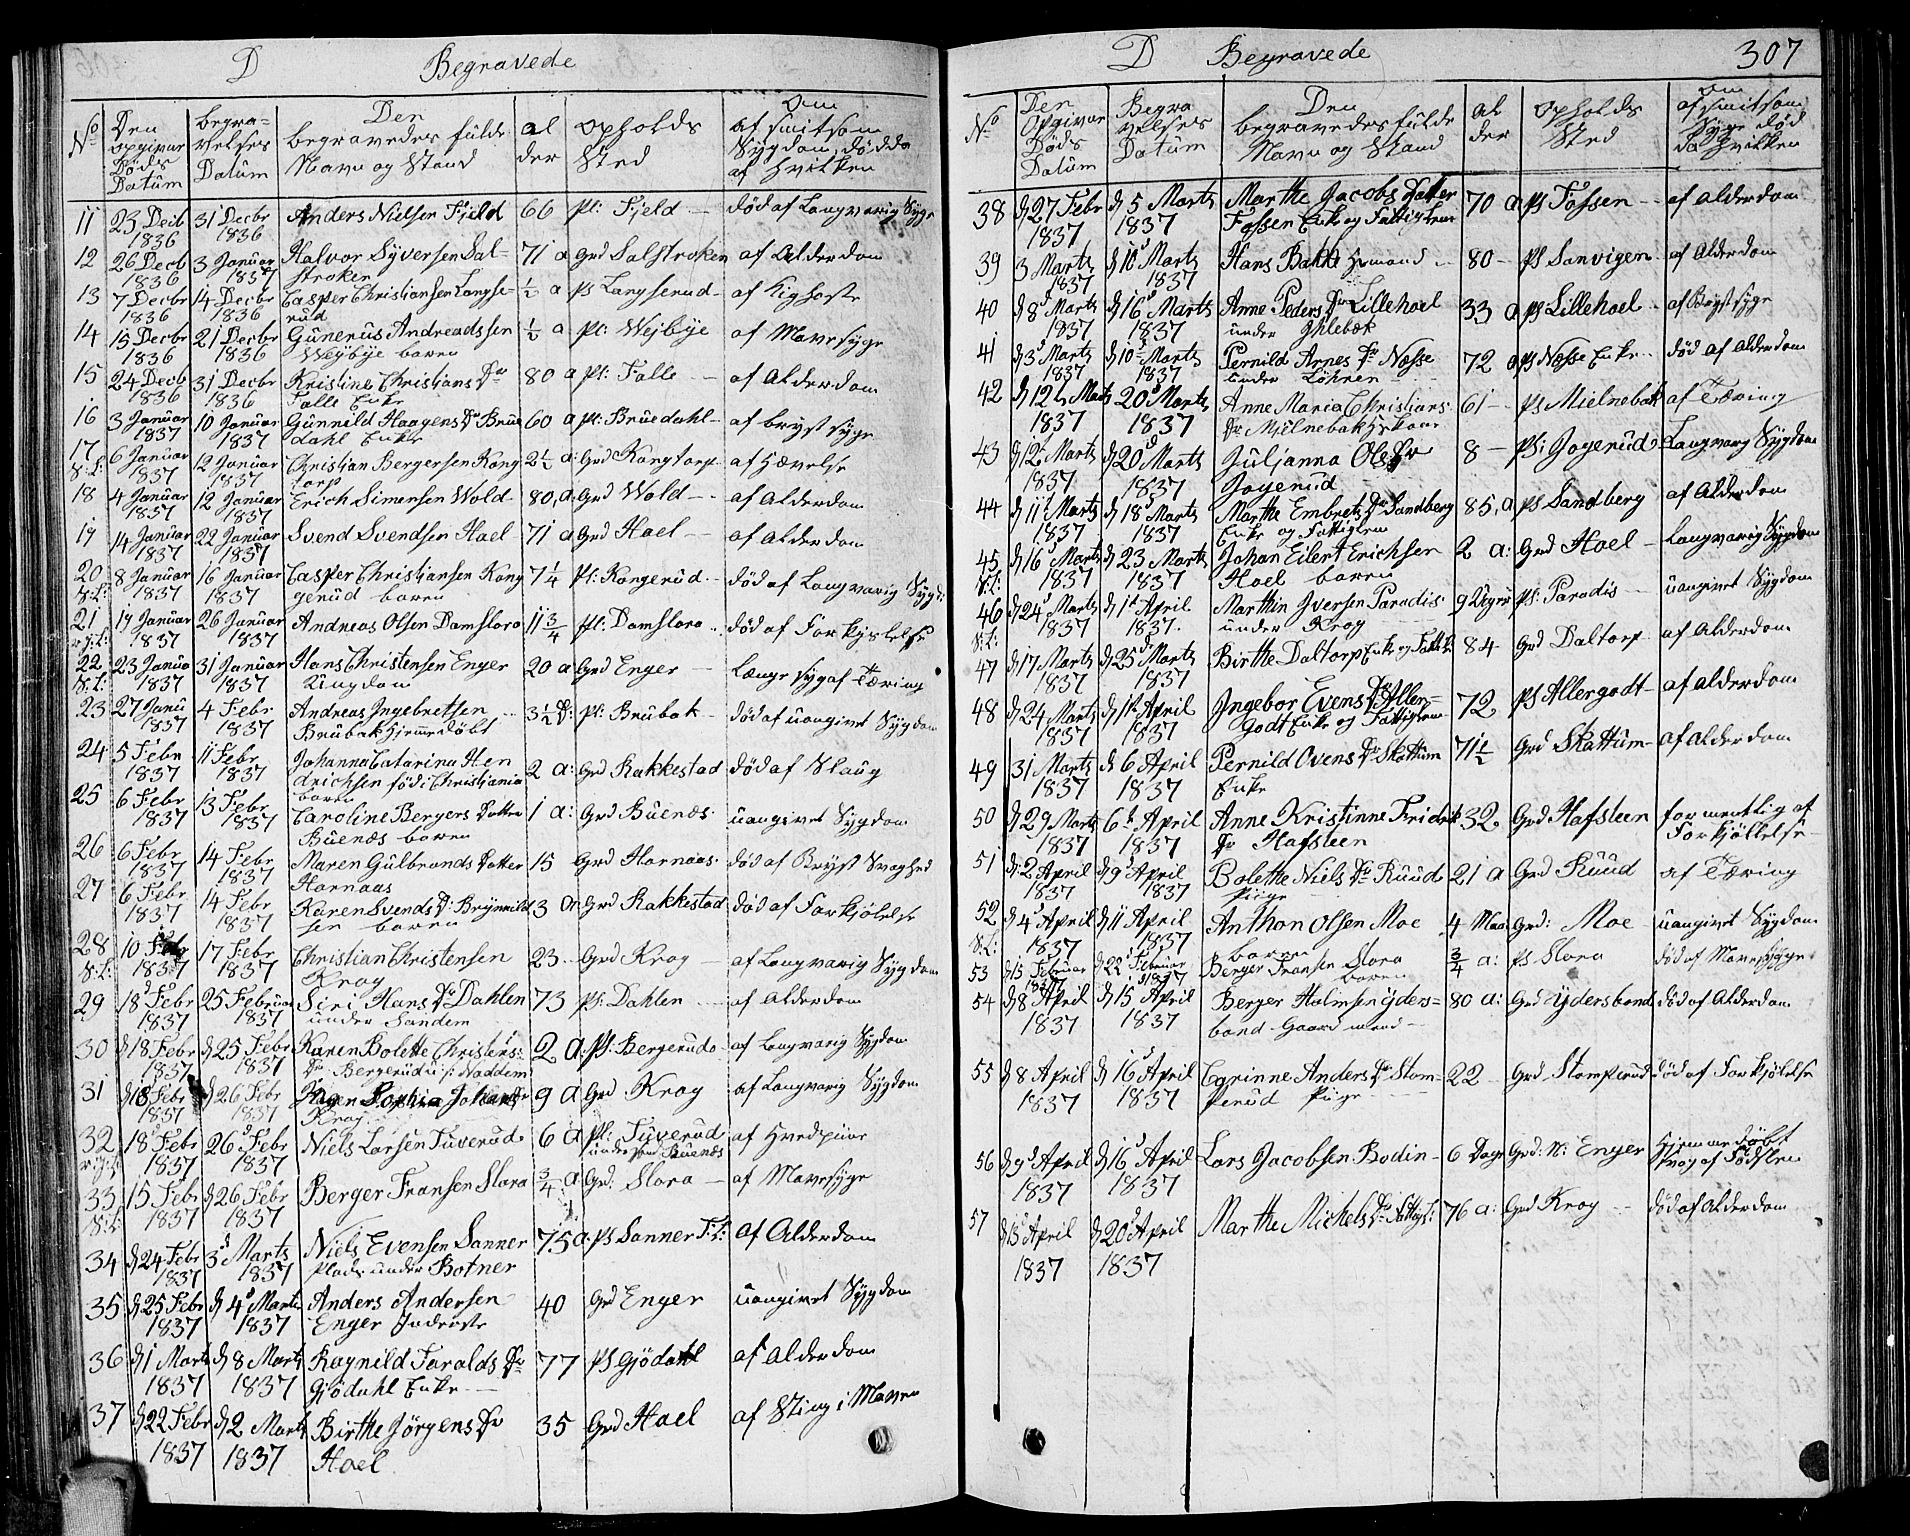 D Begravede
No
Den opgivne Døds Datum
begravelses Datum
Den begravedes fulde Navn og Stand
alder
opholds Sted
om af smitsom Sygdom, død da af hvilken
11 23 Decb 1836 31 Decbr 1836 Anders Nielsen Fjeld 66 pl: Fjeld død af Langvarig Syge
12 26 Decb 1836 3 Januar 1837 Halvor Syversen Salstroken 71 a Grd Salstroken af Alderdom
13 7 Decbr 1836 14 Decbr 1836 Casper Christiansen Langserud ½ a ps Langserud af Kighoste
14 15 Decbr 1836 21 Decbr 1836 Gunerus Andreadssen Wejbye baren ½ a pl: Wejbye af Mavesyge
15 24 Decb 1836 31 Decbr 1836 Kristine Christians Dr Falle Enke 80 a pl: Falle af Alderdom
16 3 Januar 1837 10 Januar 1837 Gunnild Haagens Dr Bruedahl Enke 60 a pl: Bruedahl af bryst syge
17 S:L: 6 Januar 1837 12 Januar 1837 Christian Bergersen Kongtorp 2½ a: Grd Kongtorp af Hævelse
18 4 Januar 1837 12 Januar 1837 Erich Simensen Wold 80, a: Grd Wold af Alderdom
19 14 Januar 1837 22 Januar 1837 Svend Svendsen Hael 71 a Grd Hael af Alderdom
20 S:L: 8 Januar 1837 16 Januar 1837 Casper Christiansen Kongerud baren 7¼ pl: Kongerud død af Langvarig Sygd:
21 19 Januar 1837 26 Januar 1837 Andreas Olsen Damslora 11¾ pl: Damslora død af Forkjølelse
22 S:L: 23 Janua 1837 31 Januar 1837 Hans Christensen Enger Ungdom 20 a Grd Enger Længe syg af Tæring
23 27 Janu 1837 4 Febr 1837 Andreas Ingebretsen Brubak Hjemedøbt 3½ D: pl: Brubak død af uangivet Sygdom
24 5 Febr 1837 11 Febr 1837 Johanna Catarina Hendrichsen føds i Christiania baren 2 a: Grd Rakkestad død af Slaug
25 6 Febr 1837 13 Febr 1837 Caroline Bergers Datter Buenæs baren 1 a: Grd Buenæs uangivet Sygdom
26 6 Febr 1837 14 Febr 1837 Maren Gulbrands Datter Harnaas 15 Grd Harnaas død af Bryst Svaghed
27 6 Febr 1837 14 Febr 1837 Karen Svends D: Brynnildsen baren 3 ar Grd Rakkestad død af Forkjølelse
28 S:L: 10 Febr 1837 17 Febr 1837 Christian Christensen Krog 23 Grd Krog af Langvarig Sygdom
29 18 Febr 1837 25 Februar 1837 Siri Hans Dr Dahlen under Sandem 73 ps: Dahlen af Alderdom
30 d 18 Febr 1837 d 25 Febr 1837 Karen Bolette Christens: Dr Bergerud u/: Naddem 2 a: ps: Bergerud af Langvarig Sygdom
31 d 18 Febr 1837 d 26 Febr 1837 Karen Sophia Johans Dr Krog 9 a Grd Krog af Langvarig Sygdom
32 18 Febr 1837 26 Febr 1837 Niels Larsen Tuverud 6 a pl: Tuverud under Grd Buenæs af
33 S:L: 15 Febr 1837 d 26 Febr 1837 Berger Fransen Slora ¾ a Grd: Slora af Mavesyge
34 d 24 Febr 1837 3d Marts 1837 Niels Evensen Sanner Plads under Botner 75 a: ps Sanner F:L: af Alderdom
35 d 25 Febr 1837 d 4d Marts 1837 Anders Andersen Enger Inderste 40 Grd Enger uangivet Sygdom
36 d 1 Marts 1837 d 8 Marts 1837 Ragnild Taralds Dr Gjødahl Enke 77 ps Gjødahl af Alderdom
37 d 22 Febr 1837 d 2 Marts 1837 Birthe Jörgens Dr Hael 35 Grd Hael af Sting i Maven
D Begravede 307
No
Den Opgivne Døds Datum
Begravelses Datum
Den begravedes fulde Navn og Stand
alder
opholds Sted
om af smitsom Syge død da hvilken
38 d 27 Febr 1837 d 5 Marts 1837 Marthe Jacobs Datter Fossen Enke og Fattiglem 70 a ps Fossen af Alderdom
39 3 Marts 1837 d 10 Marts 1837 Hans Bakke Hmand 80 ps Sanvigen af Alderdom
40 d 8 Marts 1837 d 16 Marts 1837 Anne Peders Dr Lillehoel under Ihlebæk 33 a ps Lillehoel af Brystsyge
41 d 3 Marts 1837 d 10 Marts 1837 Pernild Arnes Dr Næsse under Løhren 72 a ps Næsse Enke død af Alderdom
42 d 12 Marts 1837 20 Marts 1837 Anne Maria Christians: Dr Mjelnebak Hskone 61 ps Mielnebak af Tæring
43 d 12 Marts 1837 d 20 Marts 1837 Juljanna Ols Dr Jogerud 8 Ps: Jogerud Langvarig Sygdom
44 d 11 Marts 1837 d 18 Marts 1837 Marthe Embrets Dr Sandberg Enke og Fattiglem 85, a ps Sandberg af Alderdom
45 S:L: d 16 Marts 1837 d 23 Marts 1837 Johan Eilert Erichsen Hoel baren 2 a: Grd Hoel Langvarig Sygdom
46 S:L: d 24 Marts 1837 d 1 April 1837 Marthin Iversen Paradis under Krog 9 Uger ps: Paradis uangivet Sygdom
47 d 17 Marts 1837 d 25 Marts 1837 Birthe Daltorp Enke og Fattigl: 84 Grd Daltorp af Alderdom
48 d 24 Marts 1837 d 1 April 1837 Ingebor Evens Dr Allergodt Enke og Fattiglem 72 ps Allergodt af alderdom
49 31 Marts 1837 d 6 April 1837 Pernild Ovens Dr Skattum Enke 71½ Grd Skattum af alderdom
50 d 29 Marts 1837 6 April 1837 Anne Kristinne Fridrik Dr Hafsteen 32 Grd Hafsteen formentlig af Forkjøllelse
51 d: 2 April 1837 d 9 April 1837 Bolethe Niels Dr Ruud Piige 21 a Grd Ruud af Tæring
52 S:L: d 4 April 1837 d 11 April 1837 Anthon Olsen Moe baren 4 Maa Grd: Moe uangivet Sygdom
53 d 15 Februar 1837 d 22 Februar 1837 Berger Fransen Slora baren ¾ a: ps Slora død af Mavesyge
54 d 8 April 1837 d 15 April 1837 Berger Halmsen ydersbond Gaardmand 80 a: Grd ydersbond død af Alderdom
55 d 8 April 1837 d 16 April 1837 Corinne Anders Dr Stomperud Piige 22 Grd Stomperud død af Forkjølelse
56 d 9 April 1837 d 16 April 1837 Lars Jacobsen Bodin 6 Dage Grd: N: Enger Hjemmedøbt svag af Fødslen
57 d 13 April 1837 d 20 April 1837 Marthe Michels Dr Fattigl: 76 a: Grd Krog død af Alderdom